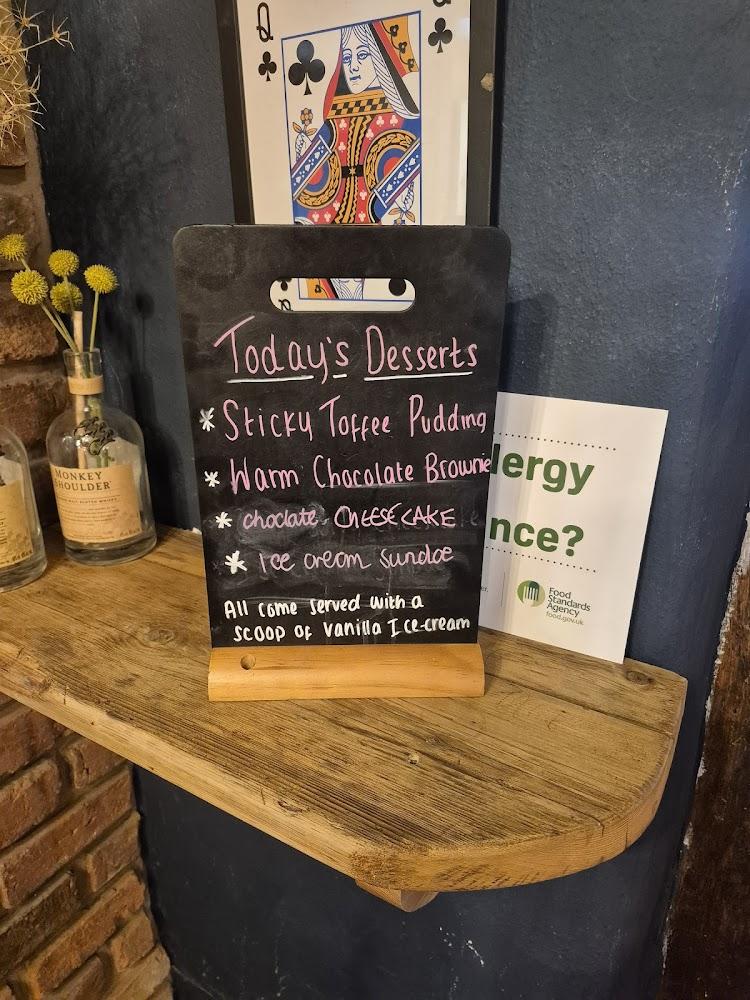 Q
Q
Today's Desserts
* Sticky Toffee Pudding
* Warm Chocolate Brownie
* choclate CHEESECAKE
* ice cream sundae
All come served with a
scoop of vanilla Ice-cream
MONKEY
SHOULDER
lergy
nce?
Food
Standards
Agency
food.gov.uk